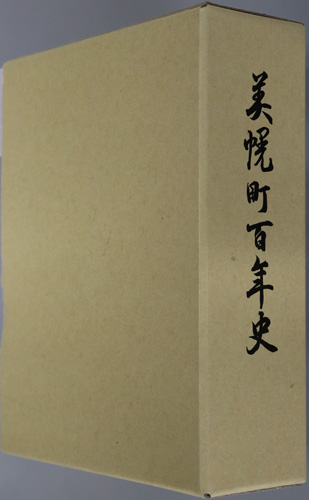 美幌町百年史